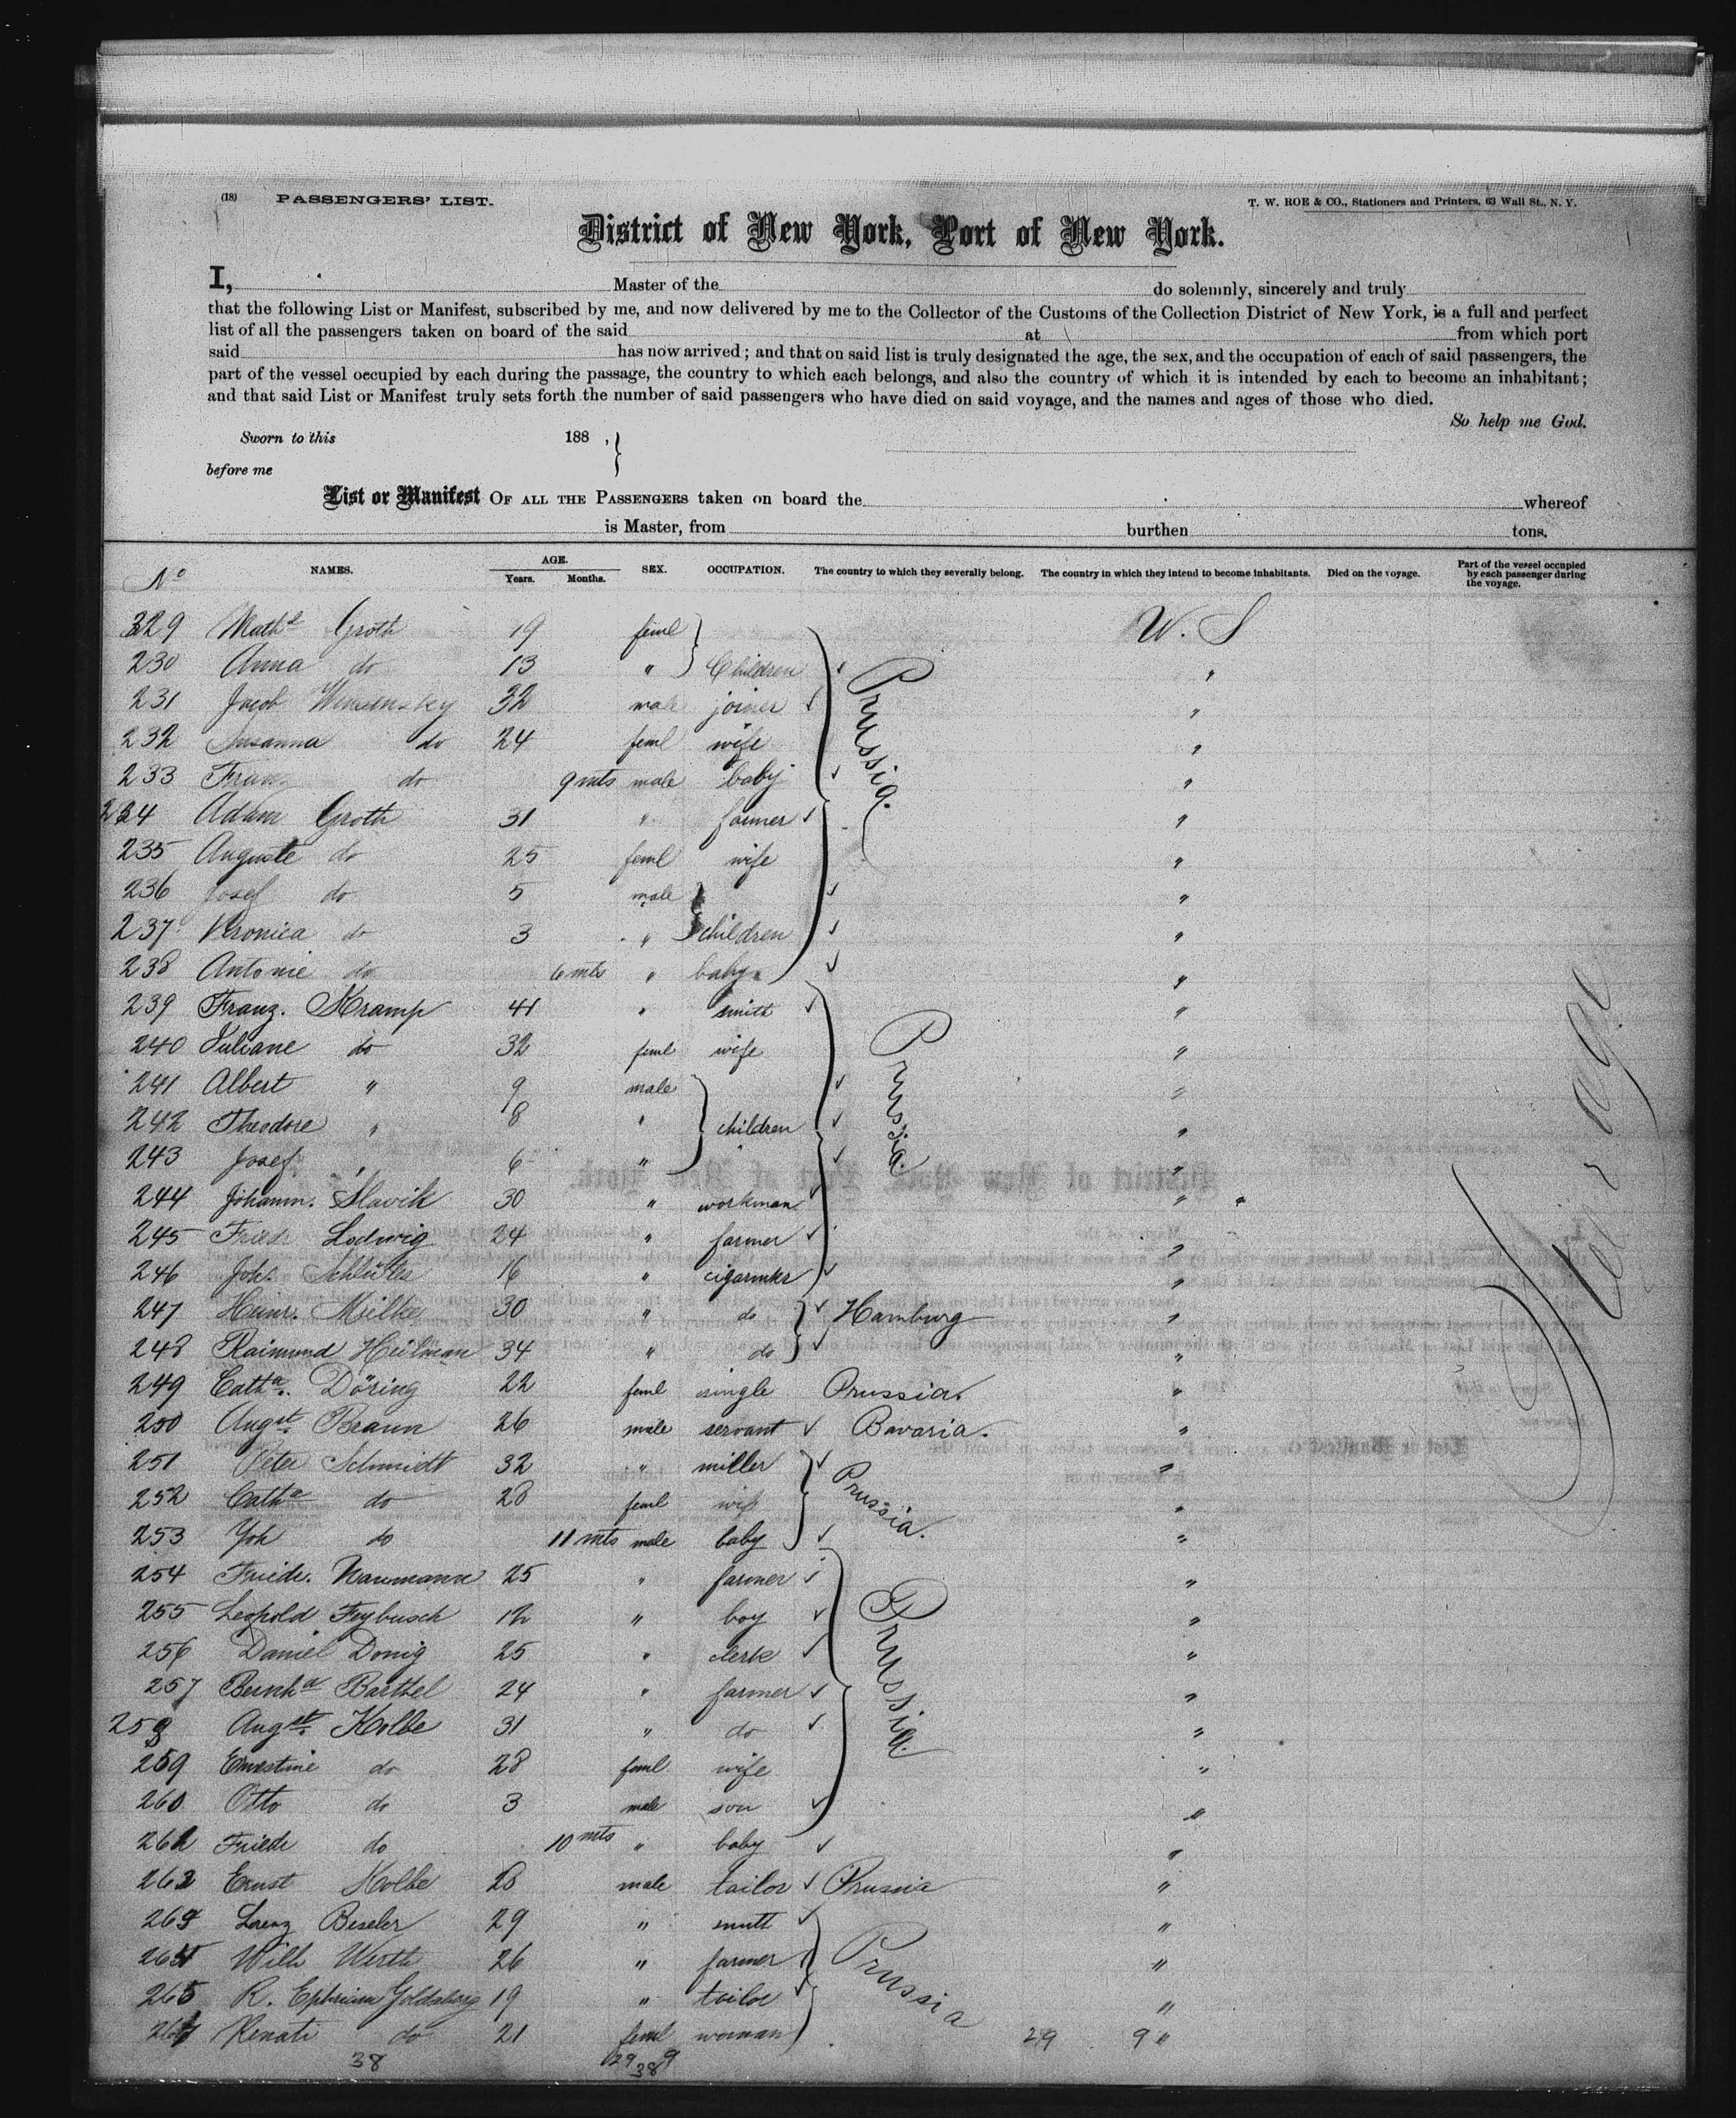 (18) PASSENGERS' LIST. T. W. ROE & CO., Stationers and Printers, 63 Wall St., N. Y.
District of New York, Port of New York.
I, Master of the do solemnly, sincerely and truly
that the following List or Manifest, subscribed by me, and now delivered by me to the Collector of the Customs of the Collection District of New York, is a full and perfect
list of all the passengers taken on board of the said at from which port
said has now arrived; and that on said list is truly designated the age, the sex, and the occupation of each of said passengers, the
part of the vessel occupied by each during the passage, the country to which each belongs, and also the country of which it is intended by each to become an inhabitant;
and that said List or Manifest truly sets forth the number of said passengers who have died on said voyage, and the names and ages of those who died.
So help me God.
Sworn to this 188 ,
before me
List or Manifest OF ALL THE PASSENGERS taken on board the whereof
is Master, from burthen tons.
No NAMES. AGE. Years. Months. SEX. OCCUPATION. The country to which they severally belong. The country in which they intend to become inhabitants. Died on the voyage. Part of the vessel occupied by each passenger during the voyage.
229 Groth 19 feml U. S
230 Anna do 13 " Children Prussia. "
231 Jacob 32 male joiner "
232 Susanna do 24 feml wife "
233 Franz do 9 mts male baby "
234 Adam Groth 31 " farmer "
235 Auguste do 25 feml wife "
236 Josef do 5 male "
237 Veronica do 3 " children "
238 Antonie do 6 mts " baby "
239 Franz. Kramp 41 " smith "
240 Juliane do 32 feml wife Prussia. "
241 Albert " 9 male "
242 Theodore " 8 " children "
243 Josef " 6 " "
244 Johann. Slavik 30 " workman "
245 Friedr Ludwig 24 " farmer "
246 Joh. Schlüter 16 " cigarmkr "
247 Heinr. Mielke 30 " do Hamburg "
248 Raimund Heilman 34 " do "
249 Catha. Döring 22 feml single Prussia. "
250 Augst. Braun 26 male servant Bavaria. "
251 Peter Schmidt 32 " miller Prussia. "
252 Catha do 28 feml wife "
253 Joh do 11 mts male baby "
254 Friedr. Naumann 25 " farmer "
255 Leopold Feybusch 12 " boy Prussia. "
256 Daniel Donig 25 " clerk "
257 Bernhd Barthel 24 " farmer "
258 Augst. Kolbe 31 " do "
259 Ernestine do 28 feml wife "
260 Otto do 3 male son "
261 Friedr do 10 mts " baby "
262 Ernst Kolbe 28 male tailor Prussia "
263 Lorenz Beseler 29 " smith "
264 Wilh Werth 26 " farmer Prussia "
265 R. Ephriam Goldsberg 19 " tailor "
266 Renati do 21 feml woman 29 9 "
38 29 9
38
Steerage